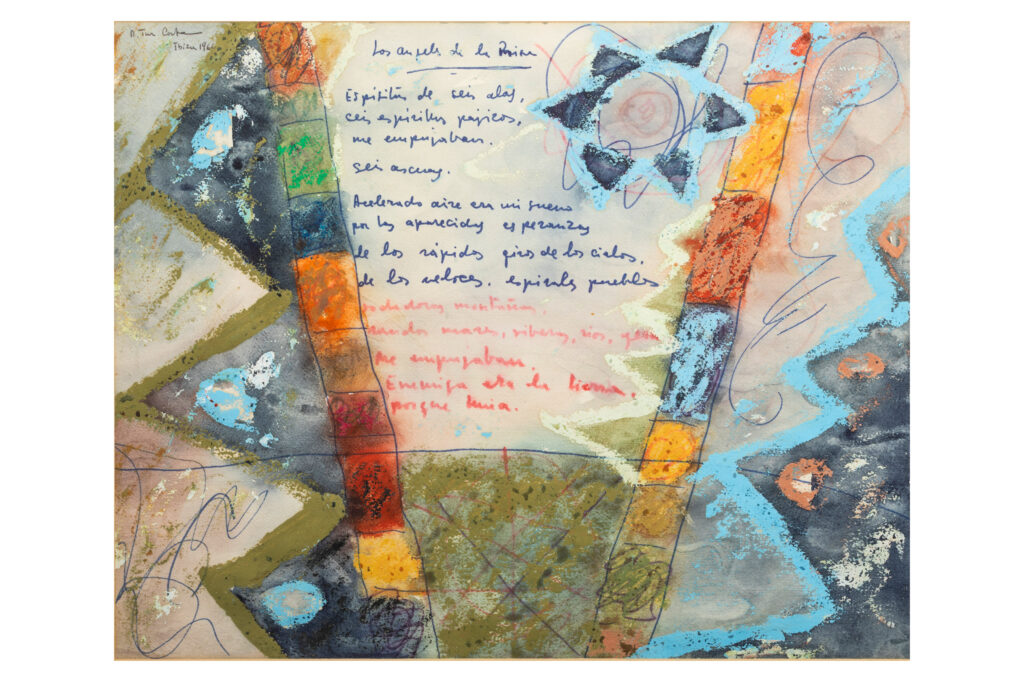 R. Tur Costa
Ibiza 196
Los angeles de la Prisa
Espiritus de seis alas,
seis espiritus pajizos,
me empujaban.
Seis ascuas.
Acelerado aire era mi sueño
por las aparecidas esperanzas
de los rápidos giros de los cielos,
de los veloces, espirales pueblos
rodadoras montañas,
raudos mares, riberas, rios,
me empujaban.
Enemiga era la tierra,
porque huia.